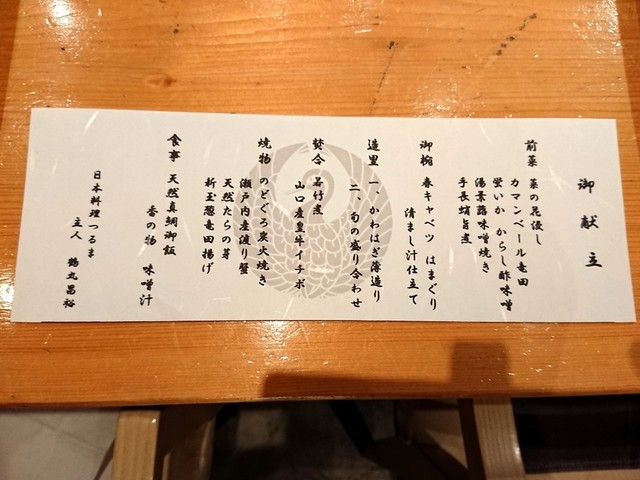 御献立
前菜 菜の花浸し
カマンベール竜田
蛍いか からし酢味噌
湯葉蕗味噌焼き
手長蛸旨煮
御椀 春キャベツ はまぐり
清まし汁仕立て
造里 一、かわはぎ薄造り
二、旬の盛り合わせ
焚合 若竹煮
山口産黒牛イチボ
焼物 のどぐろ炭火焼き
瀬戸内産渡り蟹
天然たらの芽
新玉葱竜田揚げ
食事 天然真鯛御飯
香の物 味噌汁
日本料理つるま
主人 鶴丸昌裕